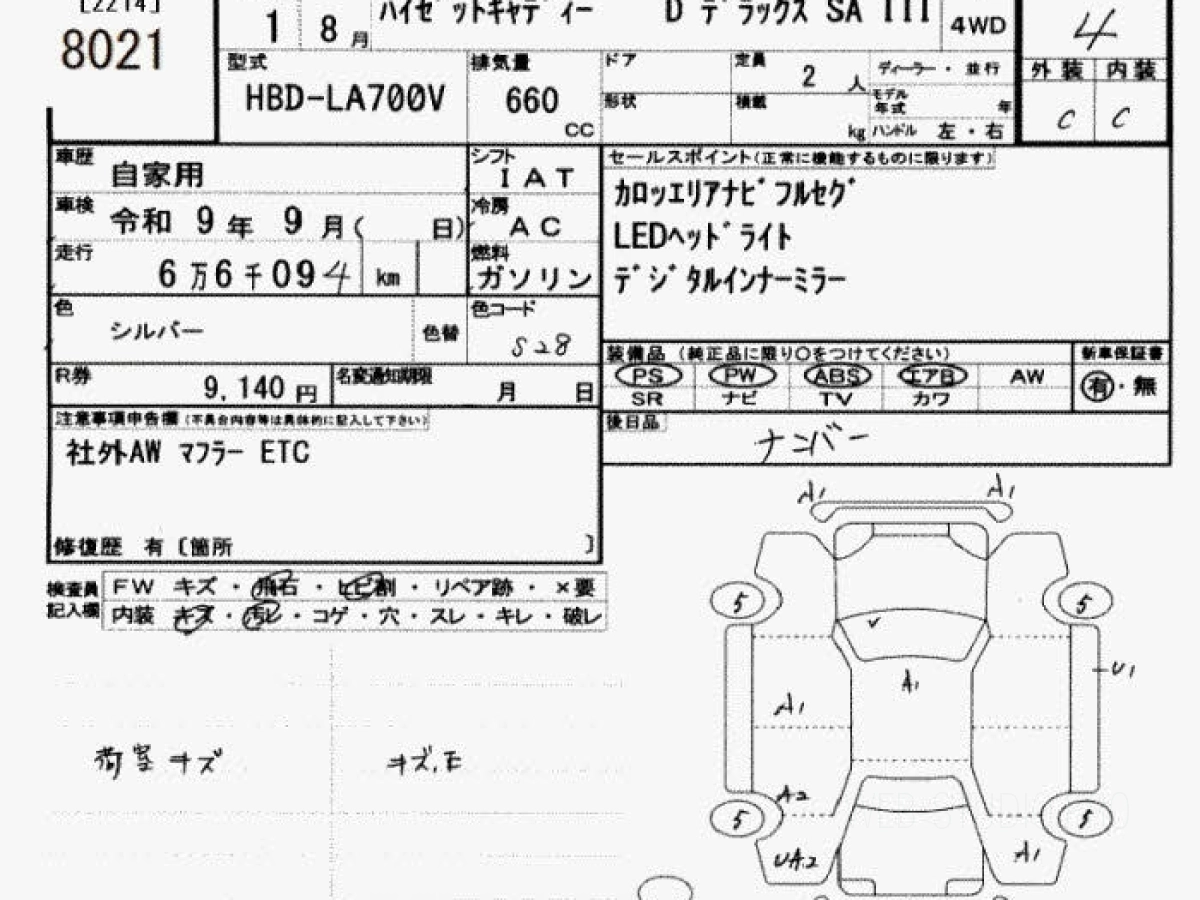 [2214]
8021
1 8月
ハイゼットキャディー D デラックス SA III 4WD
4
型式
HBD-LA700V
排気量
660
CC
ドア
形状
定員
2 人
積載
kg
ディーラー・並行
モデル年式 年
ハンドル 左・右
外装 内装
C C
車歴 自家用
シフト IAT
車検 令和 9年 9月( 日)
冷房 AC
走行 6万6千094 km
燃料 ガソリン
色 シルバー 色替
色コード S28
R券 9,140円
名変通知期限 月 日
注意事項申告欄(不具合内容等は具体的に記入して下さい)
社外AW マフラー ETC
修復歴 有〔箇所 〕
セールスポイント(正常に機能するものに限ります)
カロッエリアナビ フルセグ
LEDヘッドライト
デジタルインナーミラー
装備品(純正品に限り○をつけてください)
PS PW ABS エアB AW
SR ナビ TV カワ
新車保証書
有・無
後日品
ナンバー
検査員記入欄
FW キズ・飛石・ヒビ割・リペア跡・×要
内装 キズ・汚レ・コゲ・穴・スレ・キレ・破レ
荷室キズ
キズ,E
A1 A1
5 5
U1
A1
A1
A2
5 5
UA2 A1